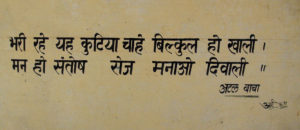 भरी रहे यह कुटिया चाहे बिल्कुल हो खाली ।
मन हो संतोष रोज मनाओ दिवाली ॥
अटल बाबा